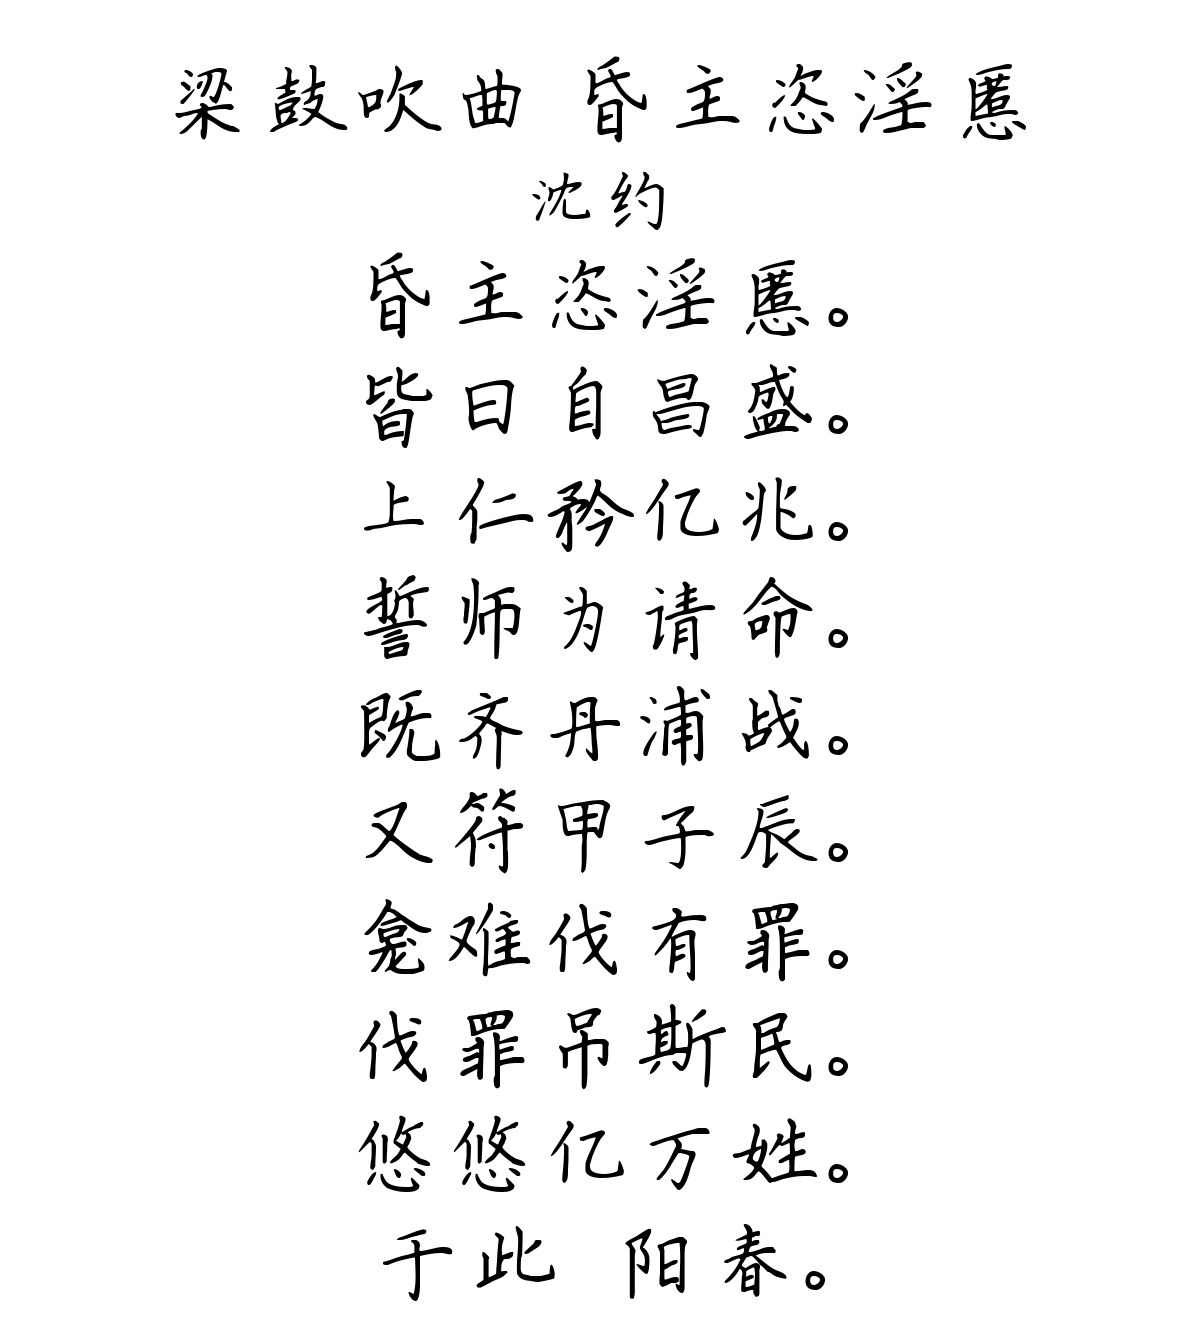 梁鼓吹曲 昏主恣淫慝
沈约
昏主恣淫慝。
皆曰自昌盛。
上仁矜亿兆。
誓师为请命。
既齐丹浦战。
又符甲子辰。
龛难伐有罪。
伐罪吊斯民。
悠悠亿万姓。
于此 阳春。